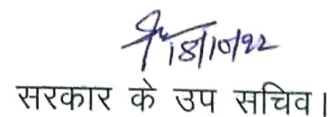 18/10/22
सरकार के उप सचिव।